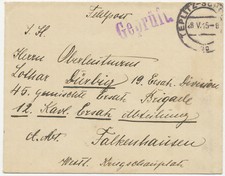 Feldpost
Geprüft
TEPLITZ-SCHÖ
S. H.
Herrn Oberleutnant
Lothar Dürbig 19. Ersatz Division
45. gemischte Ersatz Brigade
12. Kav. Ersatz Abteilung
Falkenhausen
Westl. Kriegsschauplatz